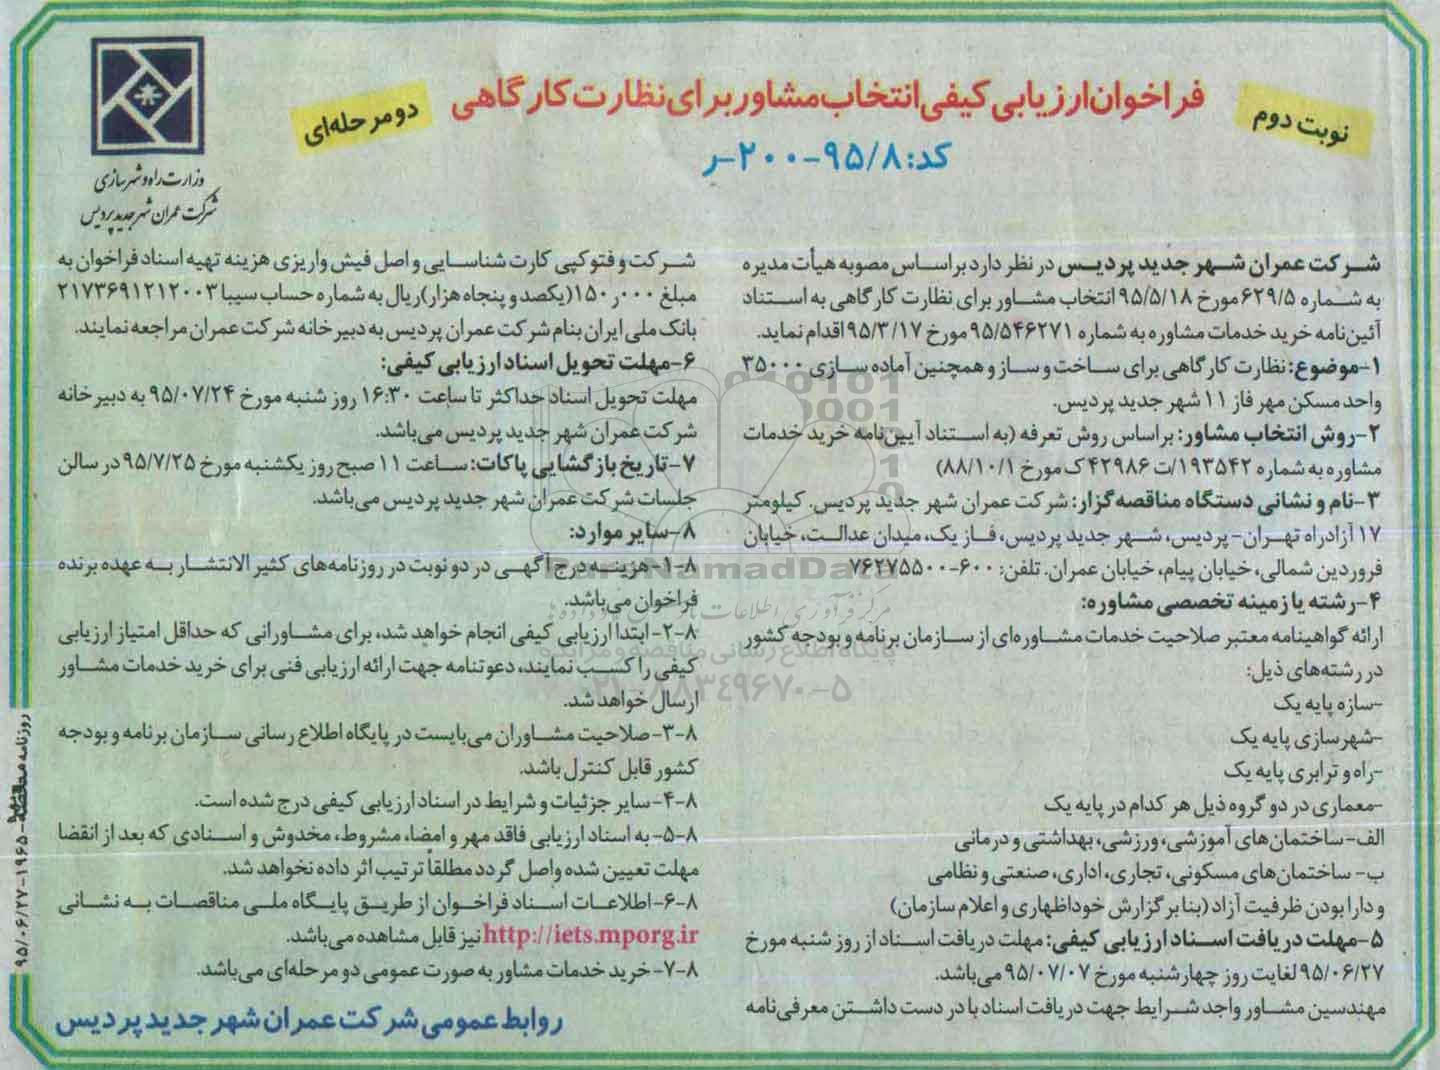 فراخوان ارزیابی کیفی انتخاب مشاور برای نظارت کارگاهی
نوبت دوم
دو مرحله‌ای
کد: ۹۵/۸-۲۰۰-ر
وزارت راه و شهرسازی
شرکت عمران شهر جدید پردیس
شرکت عمران شهر جدید پردیس در نظر دارد براساس مصوبه هیأت مدیره
به شماره ۶۲۹/۵ مورخ ۹۵/۵/۱۸ انتخاب مشاور برای نظارت کارگاهی به استناد
آئین‌نامه خرید خدمات مشاوره به شماره ۹۵/۵۴۶۲۷۱ مورخ ۹۵/۳/۱۷ اقدام نماید.
۱-موضوع: نظارت کارگاهی برای ساخت و ساز و همچنین آماده سازی ۳۵۰۰۰
واحد مسکن مهر فاز ۱۱ شهر جدید پردیس.
۲-روش انتخاب مشاور: براساس روش تعرفه (به استناد آیین‌نامه خرید خدمات
مشاوره به شماره ۱۹۳۵۴۲/ت ۴۲۹۸۶ ک مورخ ۸۸/۱۰/۱)
۳-نام و نشانی دستگاه مناقصه‌گزار: شرکت عمران شهر جدید پردیس. کیلومتر
۱۷ آزادراه تهران- پردیس، شهر جدید پردیس، فاز یک، میدان عدالت، خیابان
فروردین شمالی، خیابان پیام، خیابان عمران. تلفن: ۶۰۰-۷۶۲۷۵۵۰۰
۴-رشته یا زمینه تخصصی مشاوره:
ارائه گواهینامه معتبر صلاحیت خدمات مشاوره‌ای از سازمان برنامه و بودجه کشور
در رشته‌های ذیل:
-سازه پایه یک
-شهرسازی پایه یک
-راه و ترابری پایه یک
-معماری در دو گروه ذیل هر کدام در پایه یک
الف- ساختمان‌های آموزشی، ورزشی، بهداشتی و درمانی
ب- ساختمان‌های مسکونی، تجاری، اداری، صنعتی و نظامی
و دارا بودن ظرفیت آزاد (بنا بر گزارش خوداظهاری و اعلام سازمان)
۵-مهلت دریافت اسناد ارزیابی کیفی: مهلت دریافت اسناد از روز شنبه مورخ
۹۵/۰۶/۲۷ لغایت روز چهارشنبه مورخ ۹۵/۰۷/۰۷ می‌باشد.
مهندسین مشاور واجد شرایط جهت دریافت اسناد با در دست داشتن معرفی‌نامه
شرکت و فتوکپی کارت شناسایی و اصل فیش واریزی هزینه تهیه اسناد فراخوان به
مبلغ ۱۵۰ر۰۰۰ (یکصد و پنجاه هزار) ریال به شماره حساب سیبا ۲۱۷۳۶۹۱۲۱۲۰۰۳
بانک ملی ایران بنام شرکت عمران پردیس به دبیرخانه شرکت عمران مراجعه نمایند.
۶-مهلت تحویل اسناد ارزیابی کیفی:
مهلت تحویل اسناد حداکثر تا ساعت ۱۶:۳۰ روز شنبه مورخ ۹۵/۰۷/۲۴ به دبیرخانه
شرکت عمران شهر جدید پردیس می‌باشد.
۷-تاریخ بازگشایی پاکات: ساعت ۱۱ صبح روز یکشنبه مورخ ۹۵/۷/۲۵ در سالن
جلسات شرکت عمران شهر جدید پردیس می‌باشد.
۸-سایر موارد:
۸-۱-هزینه درج آگهی در دو نوبت در روزنامه‌های کثیر الانتشار به عهده برنده
فراخوان می‌باشد.
۸-۲- ابتدا ارزیابی کیفی انجام خواهد شد، برای مشاورانی که حداقل امتیاز ارزیابی
کیفی را کسب نمایند، دعوتنامه جهت ارائه ارزیابی فنی برای خرید خدمات مشاور
ارسال خواهد شد.
۸-۳-صلاحیت مشاوران می‌بایست در پایگاه اطلاع رسانی سازمان برنامه و بودجه
کشور قابل کنترل باشد.
۸-۴-سایر جزئیات و شرایط در اسناد ارزیابی کیفی درج شده است.
۸-۵- به اسناد ارزیابی فاقد مهر و امضا، مشروط، مخدوش و اسنادی که بعد از انقضا
مهلت تعیین شده واصل گردد مطلقاً ترتیب اثر داده نخواهد شد.
۸-۶-اطلاعات اسناد فراخوان از طریق پایگاه ملی مناقصات به نشانی
http://iets.mporg.ir نیز قابل مشاهده می‌باشد.
۸-۷-خرید خدمات مشاور به صورت عمومی دو مرحله‌ای می‌باشد.
روابط عمومی شرکت عمران شهر جدید پردیس
روزنامه مناقصه-۱۹۶۵-۹۵/۰۶/۲۷
ParsNamadData
پایگاه اطلاع رسانی مناقصه و مزایده
۰۲۱-۸۸۳۴۹۶۷۰-۵